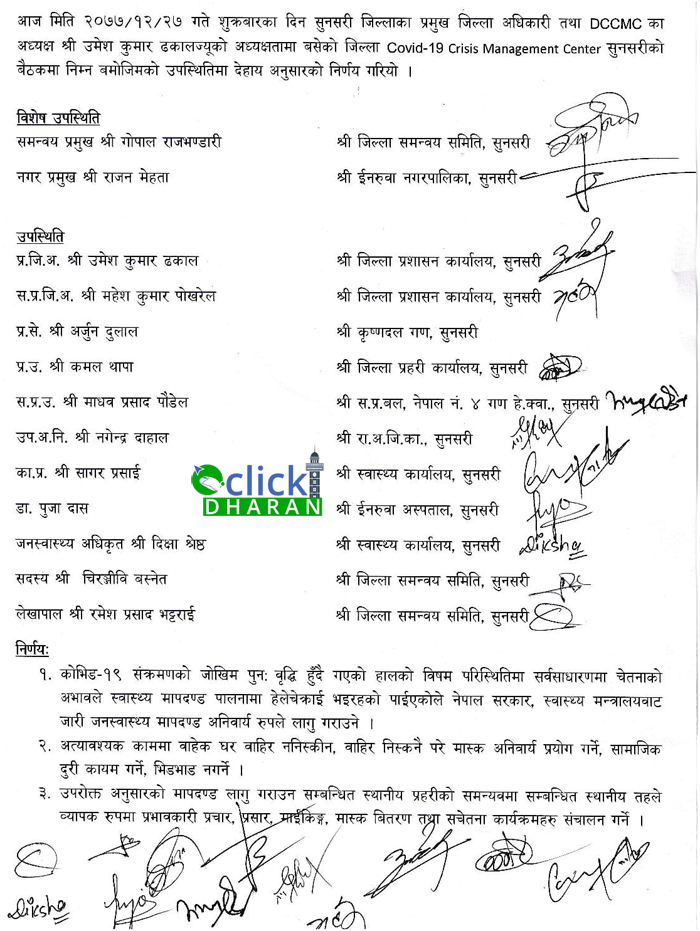 आज मिति २०७७/१२/२७ गते शुक्रबारका दिन सुनसरी जिल्लाका प्रमुख जिल्ला अधिकारी तथा DCCMC का
अध्यक्ष श्री उमेश कुमार ढकालज्यूको अध्यक्षतामा बसेको जिल्ला Covid-19 Crisis Management Center सुनसरीको
बैठकमा निम्न बमोजिमको उपस्थितिमा देहाय अनुसारको निर्णय गरियो ।
विशेष उपस्थिति
समन्वय प्रमुख श्री गोपाल राजभण्डारी श्री जिल्ला समन्वय समिति, सुनसरी
नगर प्रमुख श्री राजन मेहता श्री ईनरुवा नगरपालिका, सुनसरी
उपस्थिति
प्र.जि.अ. श्री उमेश कुमार ढकाल श्री जिल्ला प्रशासन कार्यालय, सुनसरी
स.प्र.जि.अ. श्री महेश कुमार पोखरेल श्री जिल्ला प्रशासन कार्यालय, सुनसरी
प्र.से. श्री अर्जुन दुलाल श्री कृष्णदल गण, सुनसरी
प्र.उ. श्री कमल थापा श्री जिल्ला प्रहरी कार्यालय, सुनसरी
स.प्र.उ. श्री माधव प्रसाद पौडेल श्री स.प्र.बल, नेपाल नं. ४ गण हे.क्वा., सुनसरी
उप.अ.नि. श्री नगेन्द्र दाहाल श्री रा.अ.जि.का., सुनसरी
का.प्र. श्री सागर प्रसाई श्री स्वास्थ्य कार्यालय, सुनसरी
click
DHARAN
डा. पुजा दास श्री ईनरुवा अस्पताल, सुनसरी
जनस्वास्थ्य अधिकृत श्री दिक्षा श्रेष्ठ श्री स्वास्थ्य कार्यालय, सुनसरी Diksha
सदस्य श्री चिरञ्जीवि बस्नेत श्री जिल्ला समन्वय समिति, सुनसरी
लेखापाल श्री रमेश प्रसाद भट्टराई श्री जिल्ला समन्वय समिति, सुनसरी
निर्णयः
१. कोभिड-१९ संक्रमणको जोखिम पुनः वृद्धि हुँदै गएको हालको विषम परिस्थितिमा सर्वसाधारणमा चेतनाको
अभावले स्वास्थ्य मापदण्ड पालनामा हेलेचेक्राई भइरहको पाईएकोले नेपाल सरकार, स्वास्थ्य मन्त्रालयवाट
जारी जनस्वास्थ्य मापदण्ड अनिवार्य रुपले लागु गराउने ।
२. अत्यावश्यक काममा वाहेक घर वाहिर ननिस्कीन, वाहिर निस्कनै परे मास्क अनिवार्य प्रयोग गर्ने, सामाजिक
दुरी कायम गर्ने, भिडभाड नगर्ने ।
३. उपरोक्त अनुसारको मापदण्ड लागु गराउन सम्बन्धित स्थानीय प्रहरीको समन्यवमा सम्बन्धित स्थानीय तहले
व्यापक रुपमा प्रभावकारी प्रचार, प्रसार, माईकिङ्ग, मास्क बितरण तथा सचेतना कार्यक्रमहरु संचालन गर्ने ।
Diksha